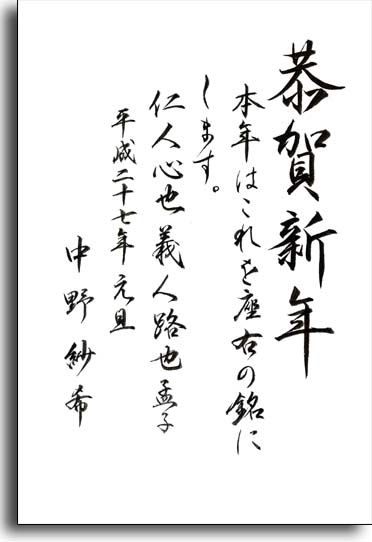 恭賀新年
本年はこれを座右の銘に
します。
仁人心也義人路也孟子
平成二十七年元旦
中野紗希